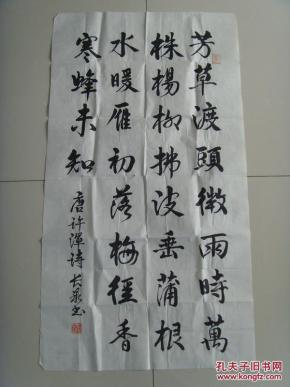 芳草渡頭微雨時萬
株楊柳拂波垂蒲根
水暖雁初落梅徑香
寒蜂未知
唐許渾詩 長泉书
孔夫子旧书网